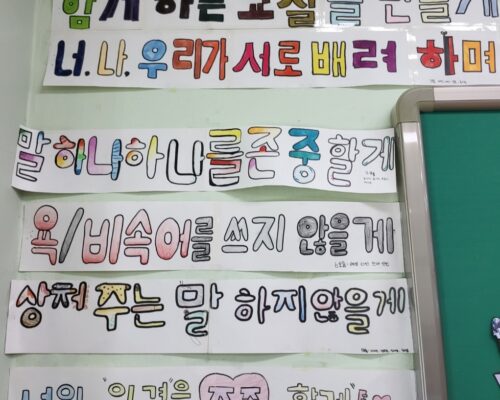 함께 하는 교실을 만들게
너.나.우리가 서로 배려 하며
말 하나하나를 존중할게
욕/비속어를 쓰지 않을게
상처 주는 말 하지않을게
너의 "의견"을 존중 할게